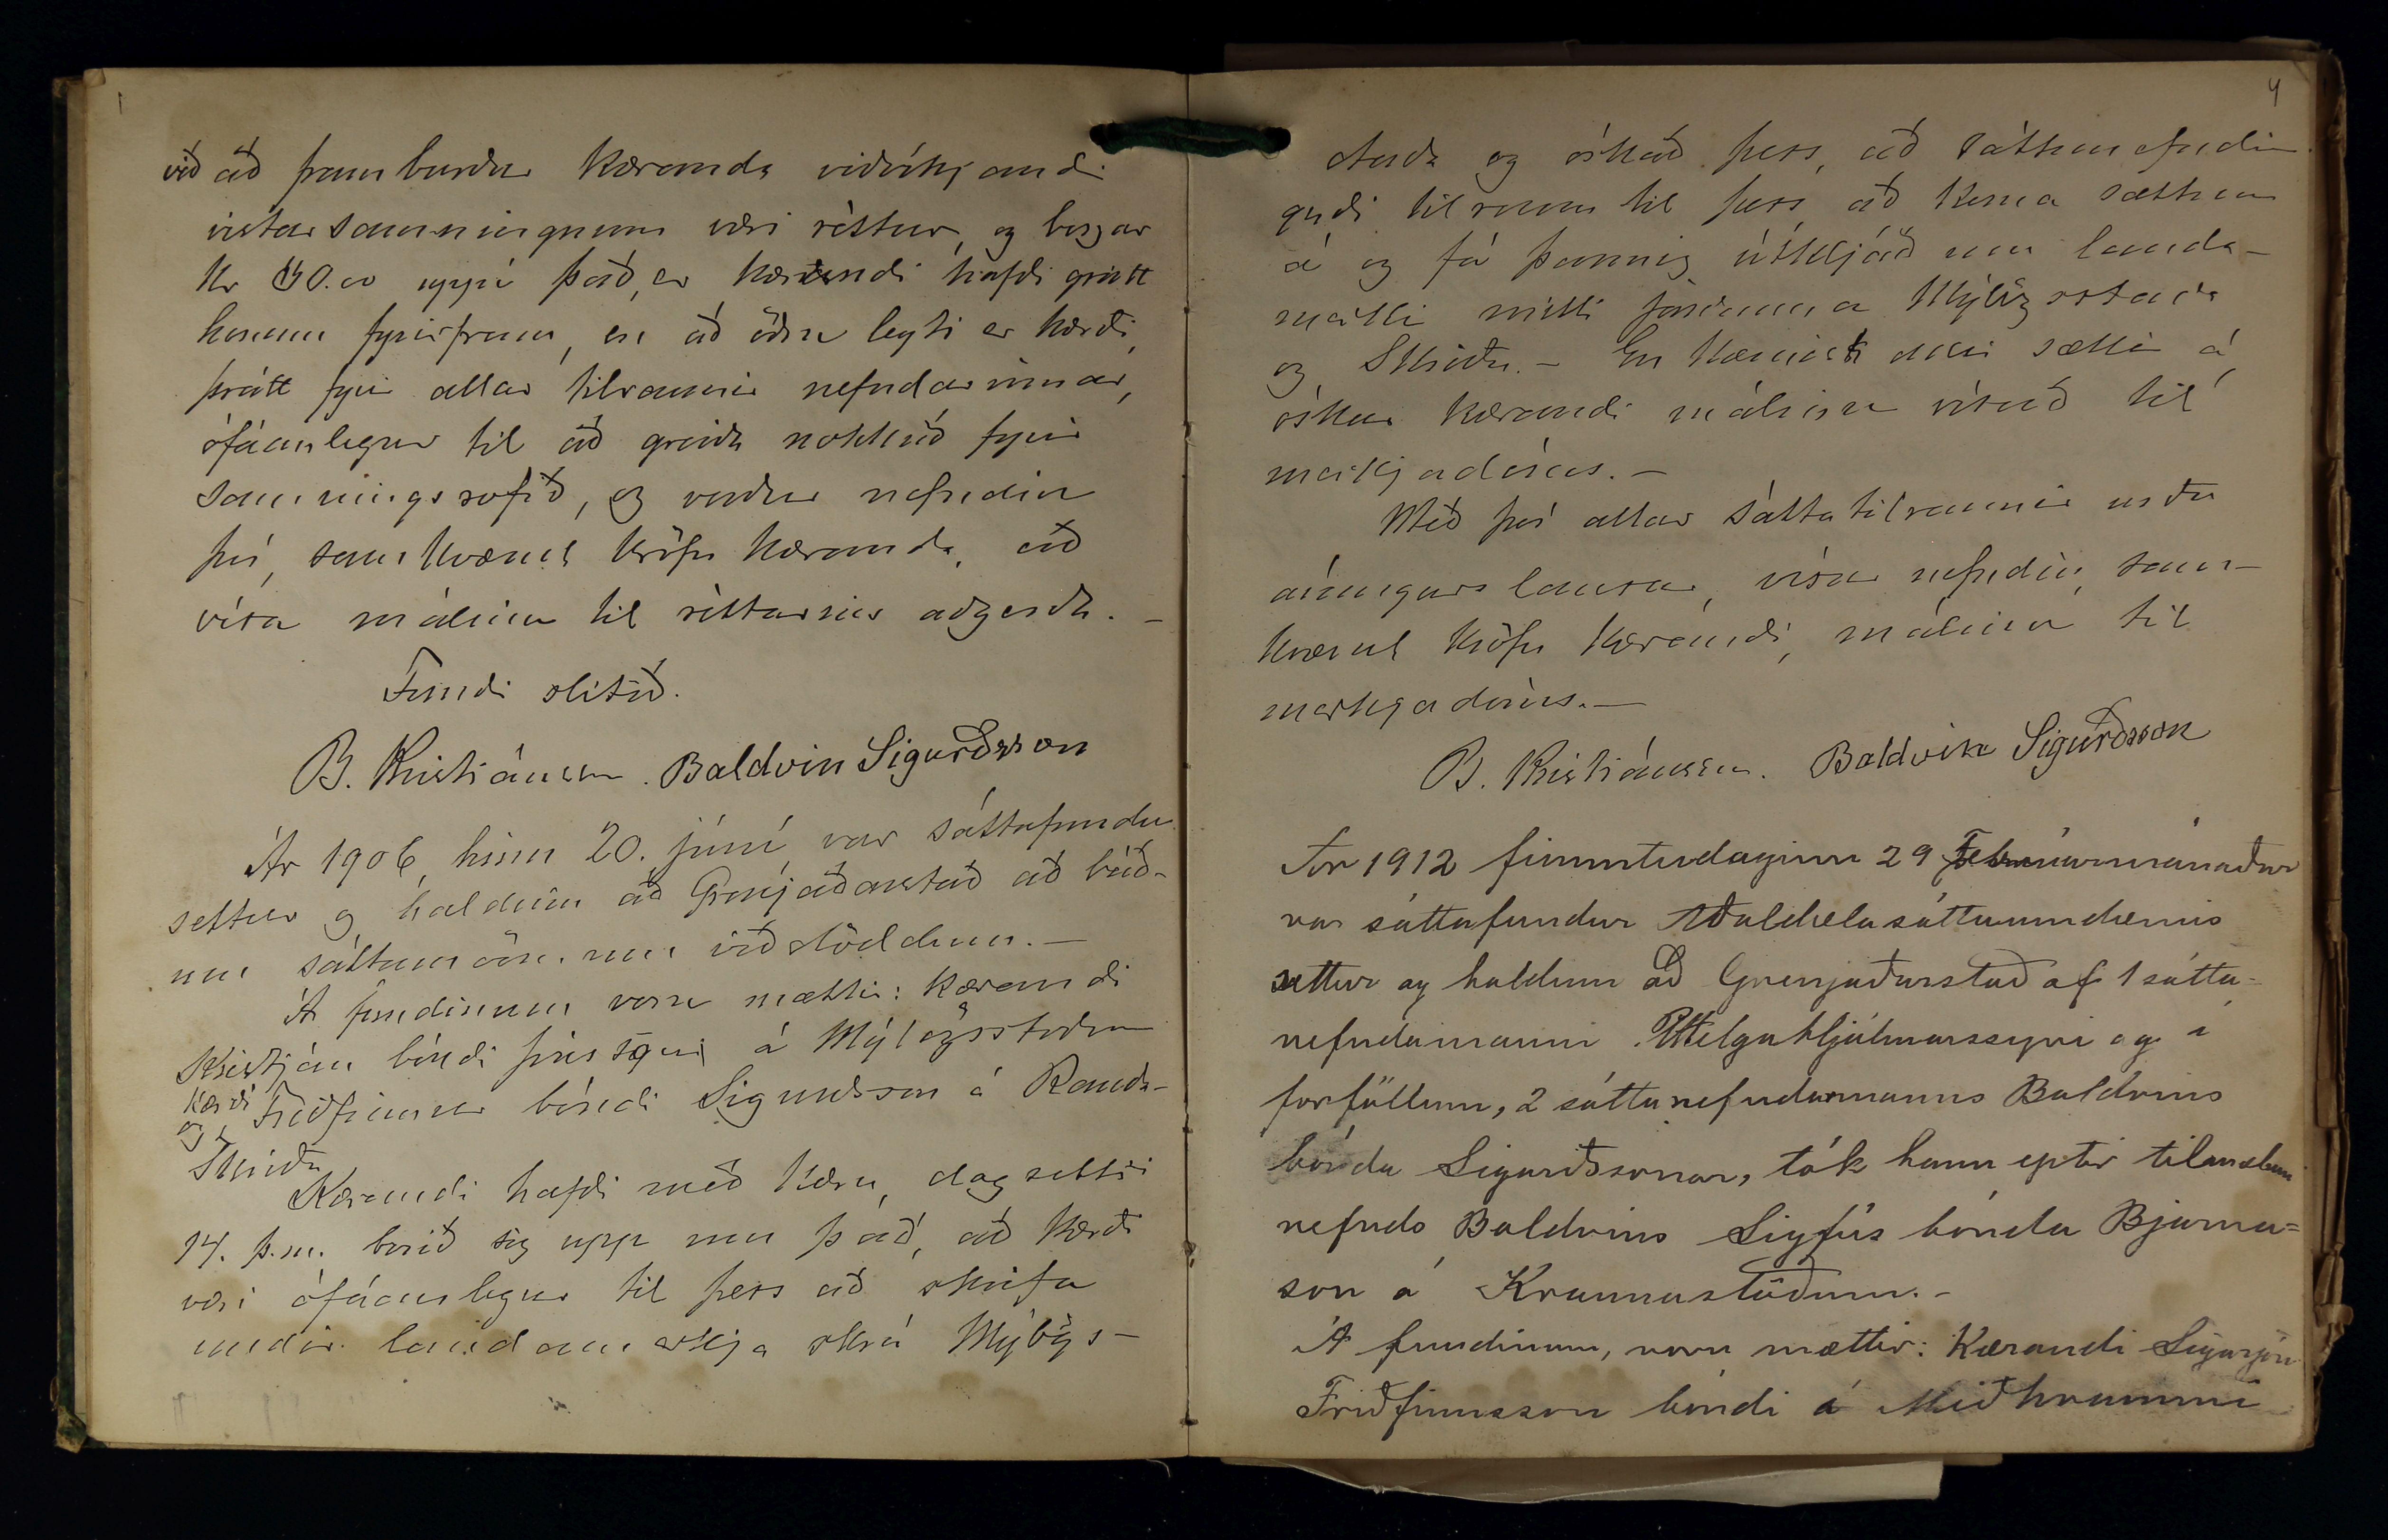 við að framburður kæranda viðvíkjandi
vistarsamningnum væri réttur, og borgar
kr 10.00 uppí það, er kærandi hafði greitt
honum fyrirfram, en að öðru leyti er kærði,
þrátt fyrir allar tilraunir nefndarinnar,
ófáanlegur til að greiða nokkuð fyrir
samningsrofið, og verður nefndin
því, samkvæmt kröfu kæranda, að
vísa málinu til réttarins aðgerða. -
Fundi slitið.
B. Kristjánsson. Baldvin Sigurðsson
Ár 1906, hinn 20. júní, var sáttafundur
settur og haldinn að Grenjaðarstað að báð-
um sáttamönnum viðstöddum. -
Á fundinum voru mættir: kærandi
Kristján bóndi á Mýlögsstöðum
og kærði Friðfinnur bóndi Sigurðsson á Rauðu-
Skriðu
Kærandi hafði með kæru, dagsettri
14. þ.m. borið sig upp um það, að kærði
væri ófáanlegur til þess að skrifa
undir landamerkjaskrá Mýlögs-
4
staða og óskað þess, að sáttanefndin
gerði tilraun til þess að koma sættum
á og fá þannig útkljáð um landa-
merki milli jarðanna Mýlögsstaða
og Skriðu. - En komist ekki sættir á,
óskar kærandi málinu vísað til
merkjadóms. -
Með því allar sáttatilraunir urðu
árangurslausar, vísar nefndin, sam-
kvæmt kröfu kæranda, málinu til
merkjadóms. -
B. Kristjánsson. Baldvin Sigurðsson
Ár 1912 fimmtudaginn 29 Febrúarmánaðar
var sáttafundur Aðaldælasáttaumdæmis
settur og haldinn að Grenjaðarstað af 1 sátta-
nefndamanni Helga Hjálmarssyni og í
forföllum, 2 sáttanefndarmanns Baldvins
bónda Sigurðssonar, tók hann eptir tilmælum
nefnds Baldvins Sigfús bónda Bjarna=
son á Kraunastöðum. -
Á fundinum, voru mættir: Kærandi Sigurjón
Friðfinnsson bóndi á Miðhvammi